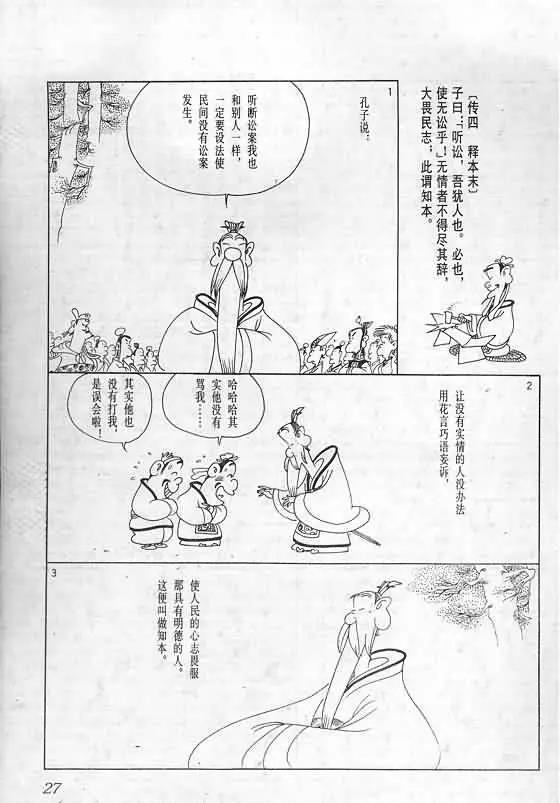 〔传四　释本末〕
子曰：「听讼，吾犹人也。必也，
使无讼乎！」无情者不得尽其辞，
大畏民志；此谓知本。
1
孔子说：
听断讼案我也
和别人一样，
一定要设法使
民间没有讼案
发生。
2
让没有实情的人没办法
用花言巧语妄诉，
哈哈哈其
实他没有
骂我……
其实他也
没有打我，
是误会啦！
3
使人民的心志畏服
那具有明德的人。
这便叫做知本。
27